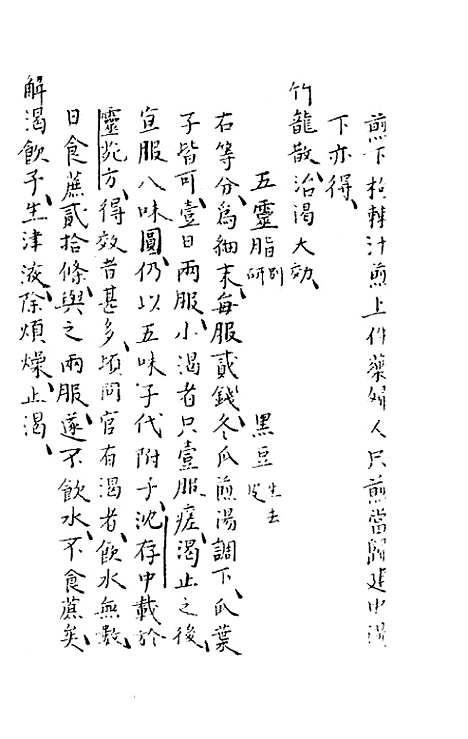 煎下枝轉汁煎上件藥婦人只煎當歸建中湯
下亦得
竹龍散治渴大効
五靈脂別研 黑豆生去皮
右等分爲細末每服貳錢冬瓜煎湯調下瓜葉
子皆可壹日兩服小渴者只壹服瘥渴止之後
宜服八味圓仍以五味子代附子沈存中載於
靈苑方得效者甚多頃間官有渴者飲水無數
日食蔗貳拾條與之兩服遂不飲水不食蔗矣
解渴飲子生津液除煩燥止渴